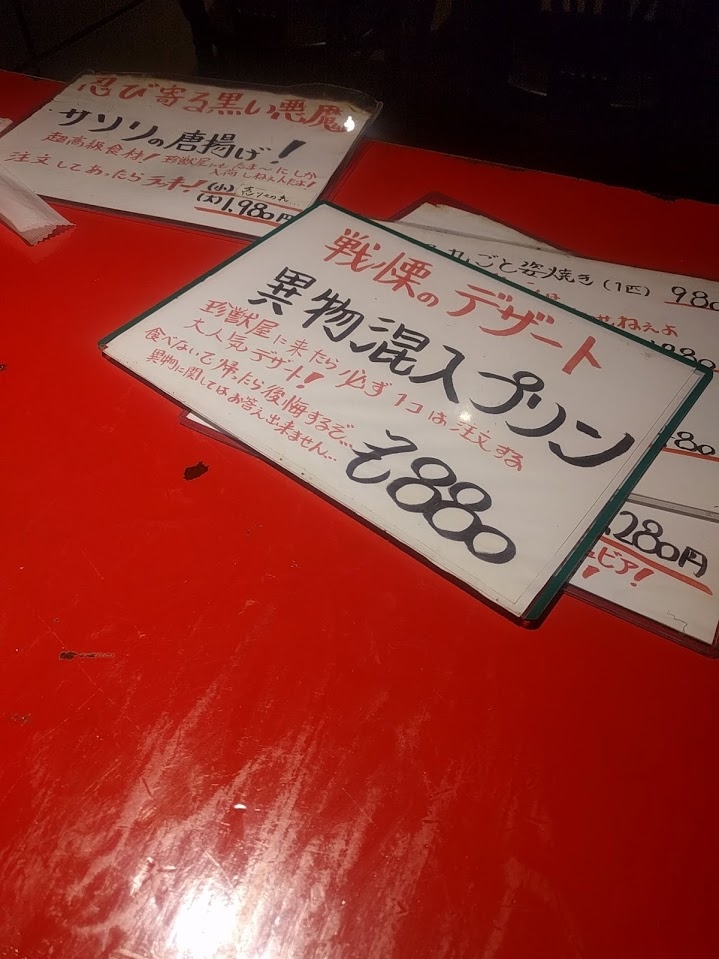 忍び寄る黒い悪魔
サソリの唐揚げ!
超高級食材! 珍獣屋にも たま〜にしか
入荷しねぇんだよ!
注文してあったらラッキー! (小)
(大)1,980円
戦慄のデザート
異物混入プリン
珍獣屋に来たら必ず1コは注文する
大人気デザート!
食べないで帰ったら後悔するぞ…
異物に関してはお答え出来ません…
¥880
ごと姿焼き(1匹) 980
ねぇよ
880
480
,280円
ビア!